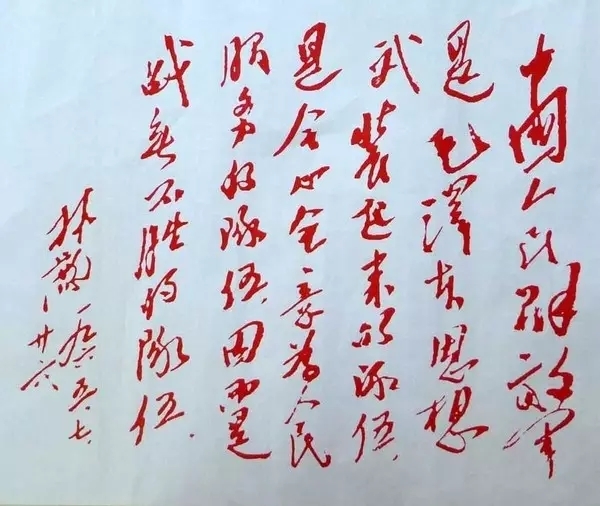 中国人民解放军
是毛泽东思想
武装起来的队伍，
是全心全意为人民
服务的队伍，因而是
战无不胜的队伍。
林彪 一九六五、七、
廿六